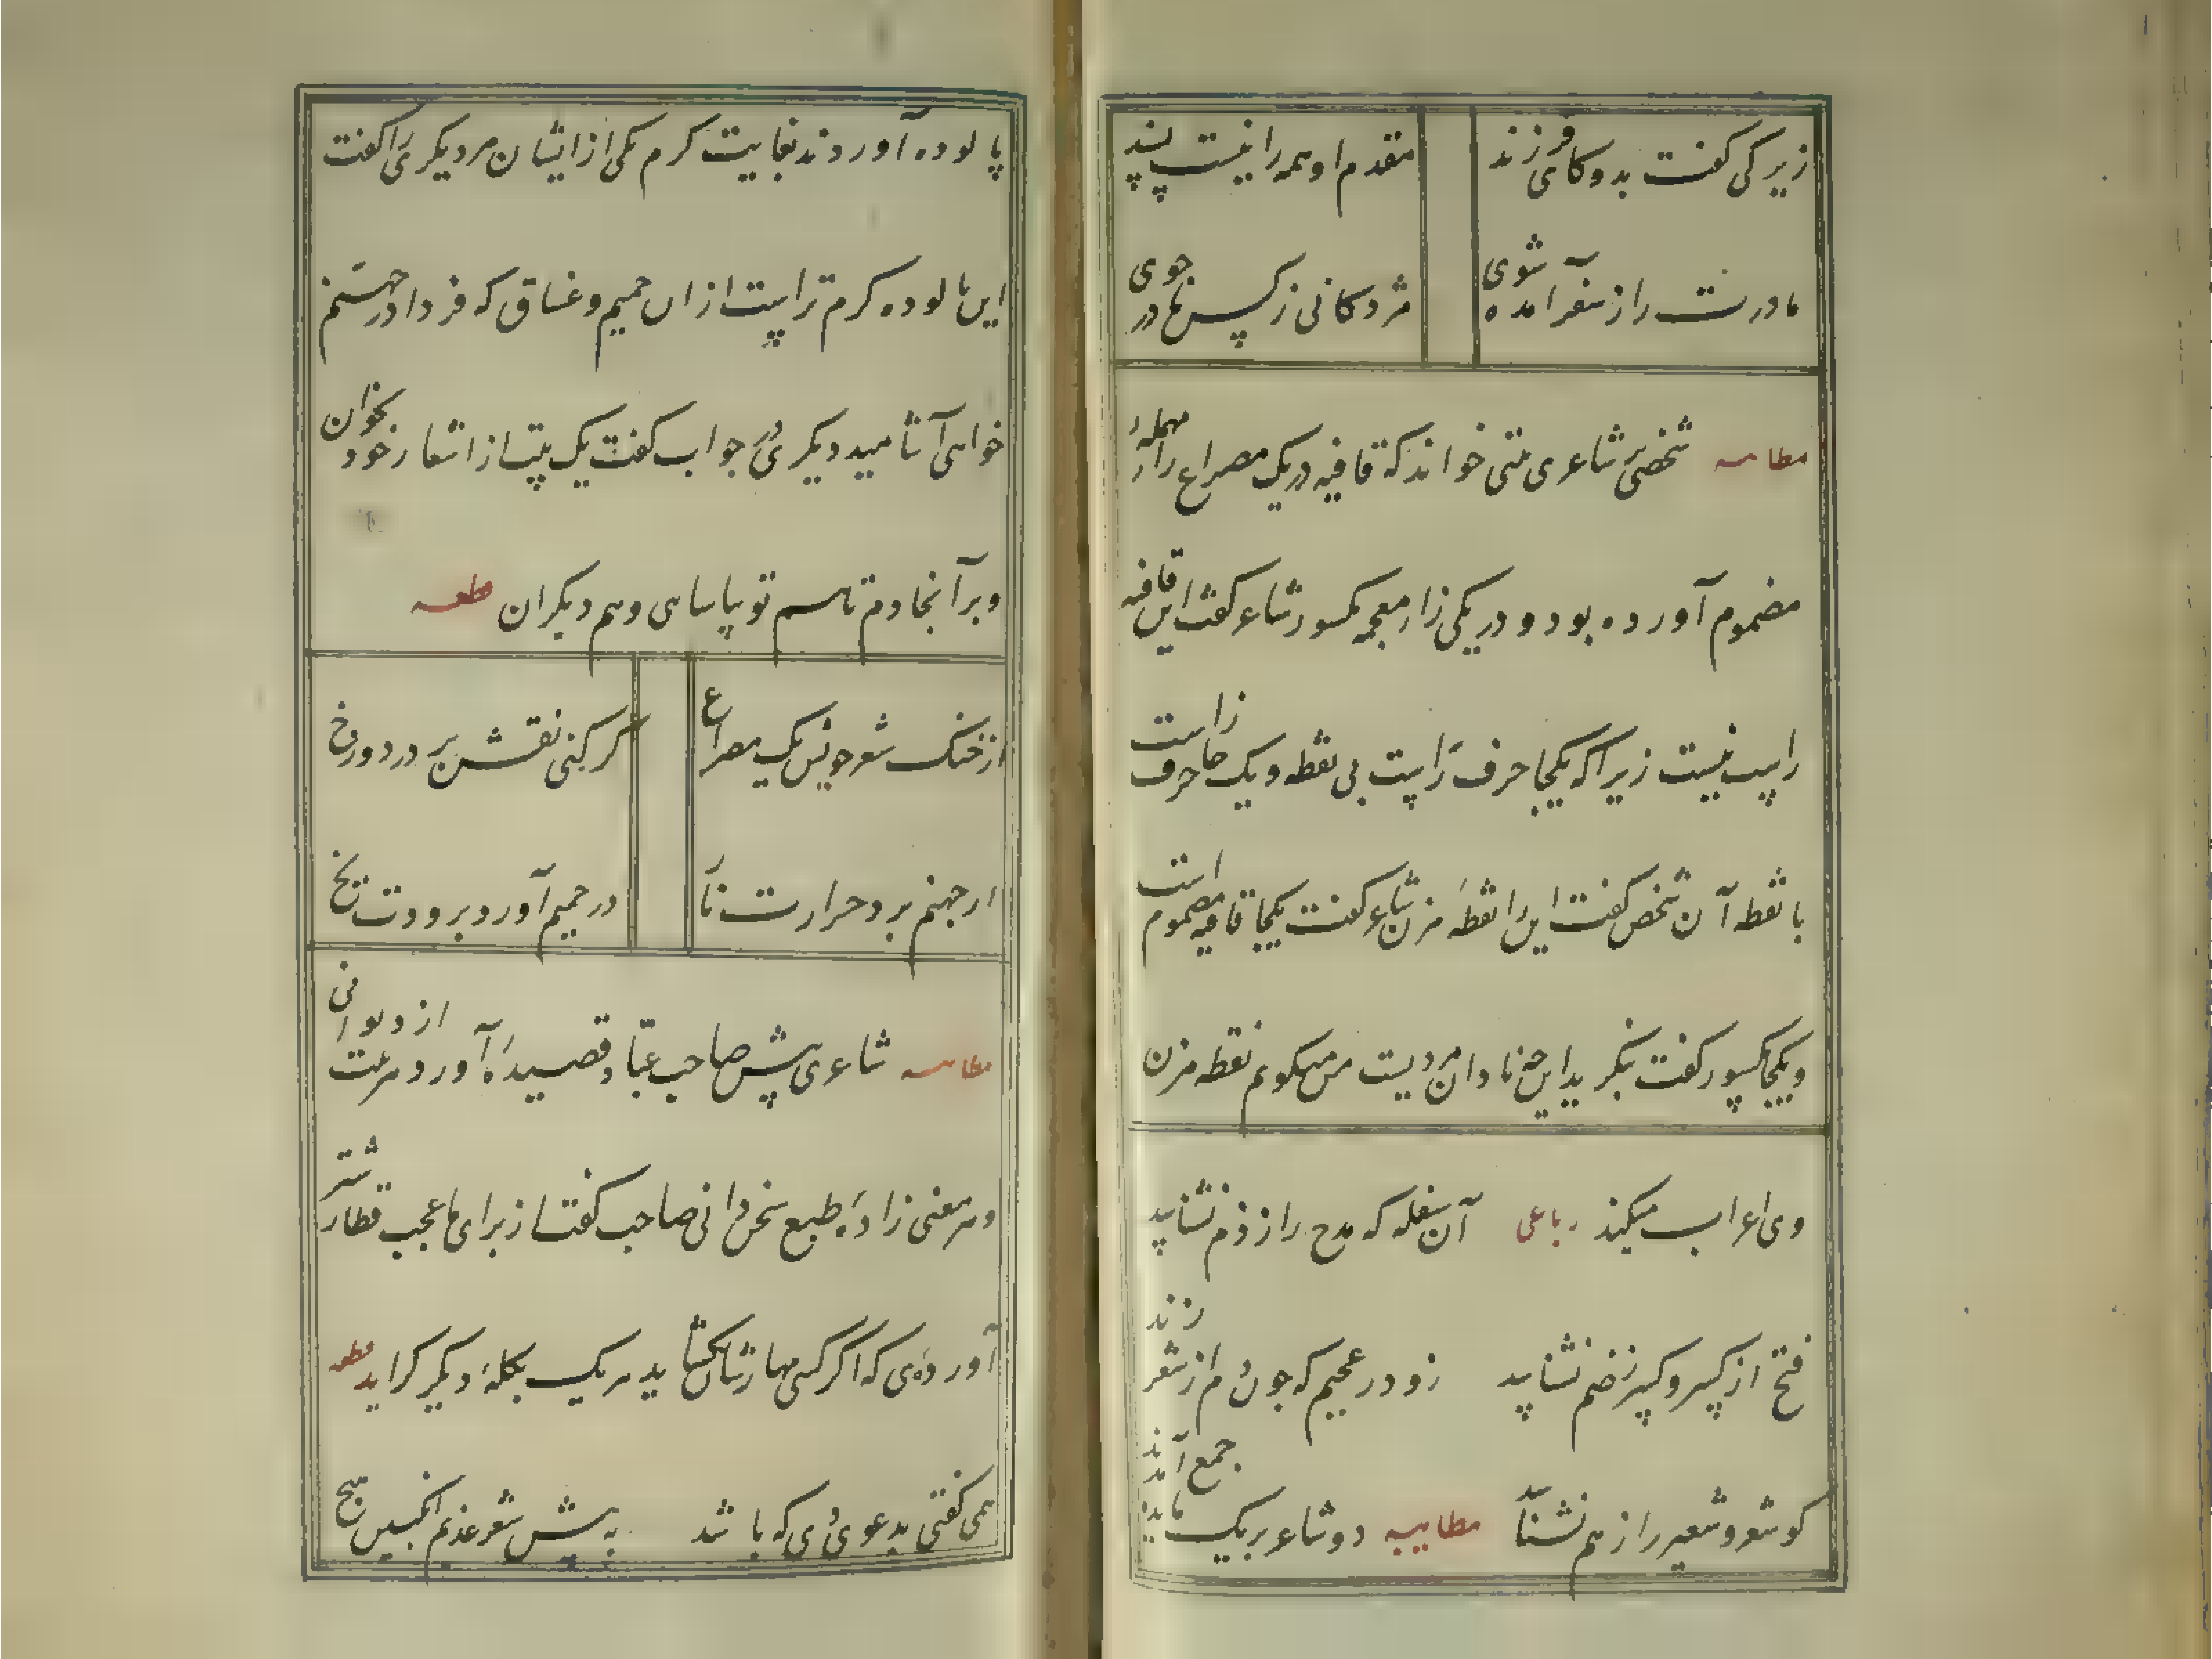 زیرکی کفت بدو کای فرزند مقدم او همه را نیست پسند
مادرت را ز سفر آمده شوی مژدکانی ز کس نادر جوی
مطایبه شخصی بر شاعری بیتی خواند که قافیه در یک مصراع راء مهمله
مضموم آورده بود و در یکی زاء معجمه مکسور شاعر کفت این قافیه
راست نیست زیرا که یکجا حرف راست بی نقطه و یک جا حرف زاست
با نقطه آن شخص کفت این را نقطه مزن شاعر کفت یکجا قافیه مضموم است
و یکجا مکسور کفت بنکرید این چه نادان مردیست من میکویم نقطه مزن
وی اعراب میکند رباعی آن سفله که مدح را ز ذم نشناسد
فتح از کسر و کسر ز ضم نشناسد زو در عجبم که چون دم از شعر زند
کو شعر و شعیر را ز هم نشناسد مطایبه دو شاعر بر یک مایده جمع آمدند
پالوده آوردند بغایت کرم یکی از ایشان مر دیکری را کفت
این پالوده کرم تراست از ان حمیم و غساق که فردا در جهنم
خواهی آشامید دیکری در جواب کفت یک بیت از اشعار خود بخوان
و بر آنجا دم تا هم تو بیاسایی و هم دیکران قطعه
از خنک شعر خویش یک مصراع کر کنی نقش بر در دوزخ
از جهنم برد حرارت نار در حمیم آورد برودت یخ
مطایبه شاعری پیش صاحب عباد قصیده آورد هر بیت از دیوانی
و هر معنی زاده طبع سخن دانی صاحب کفت از برای ما عجب قطار شتر
آورده‌ی که اکر کسی مهارشان بکشاید هر یک بکله دیکر کراید قطعه
همی کفتی بدعوی دی که باشد به پیش شعر عذبم انکبین هیچ